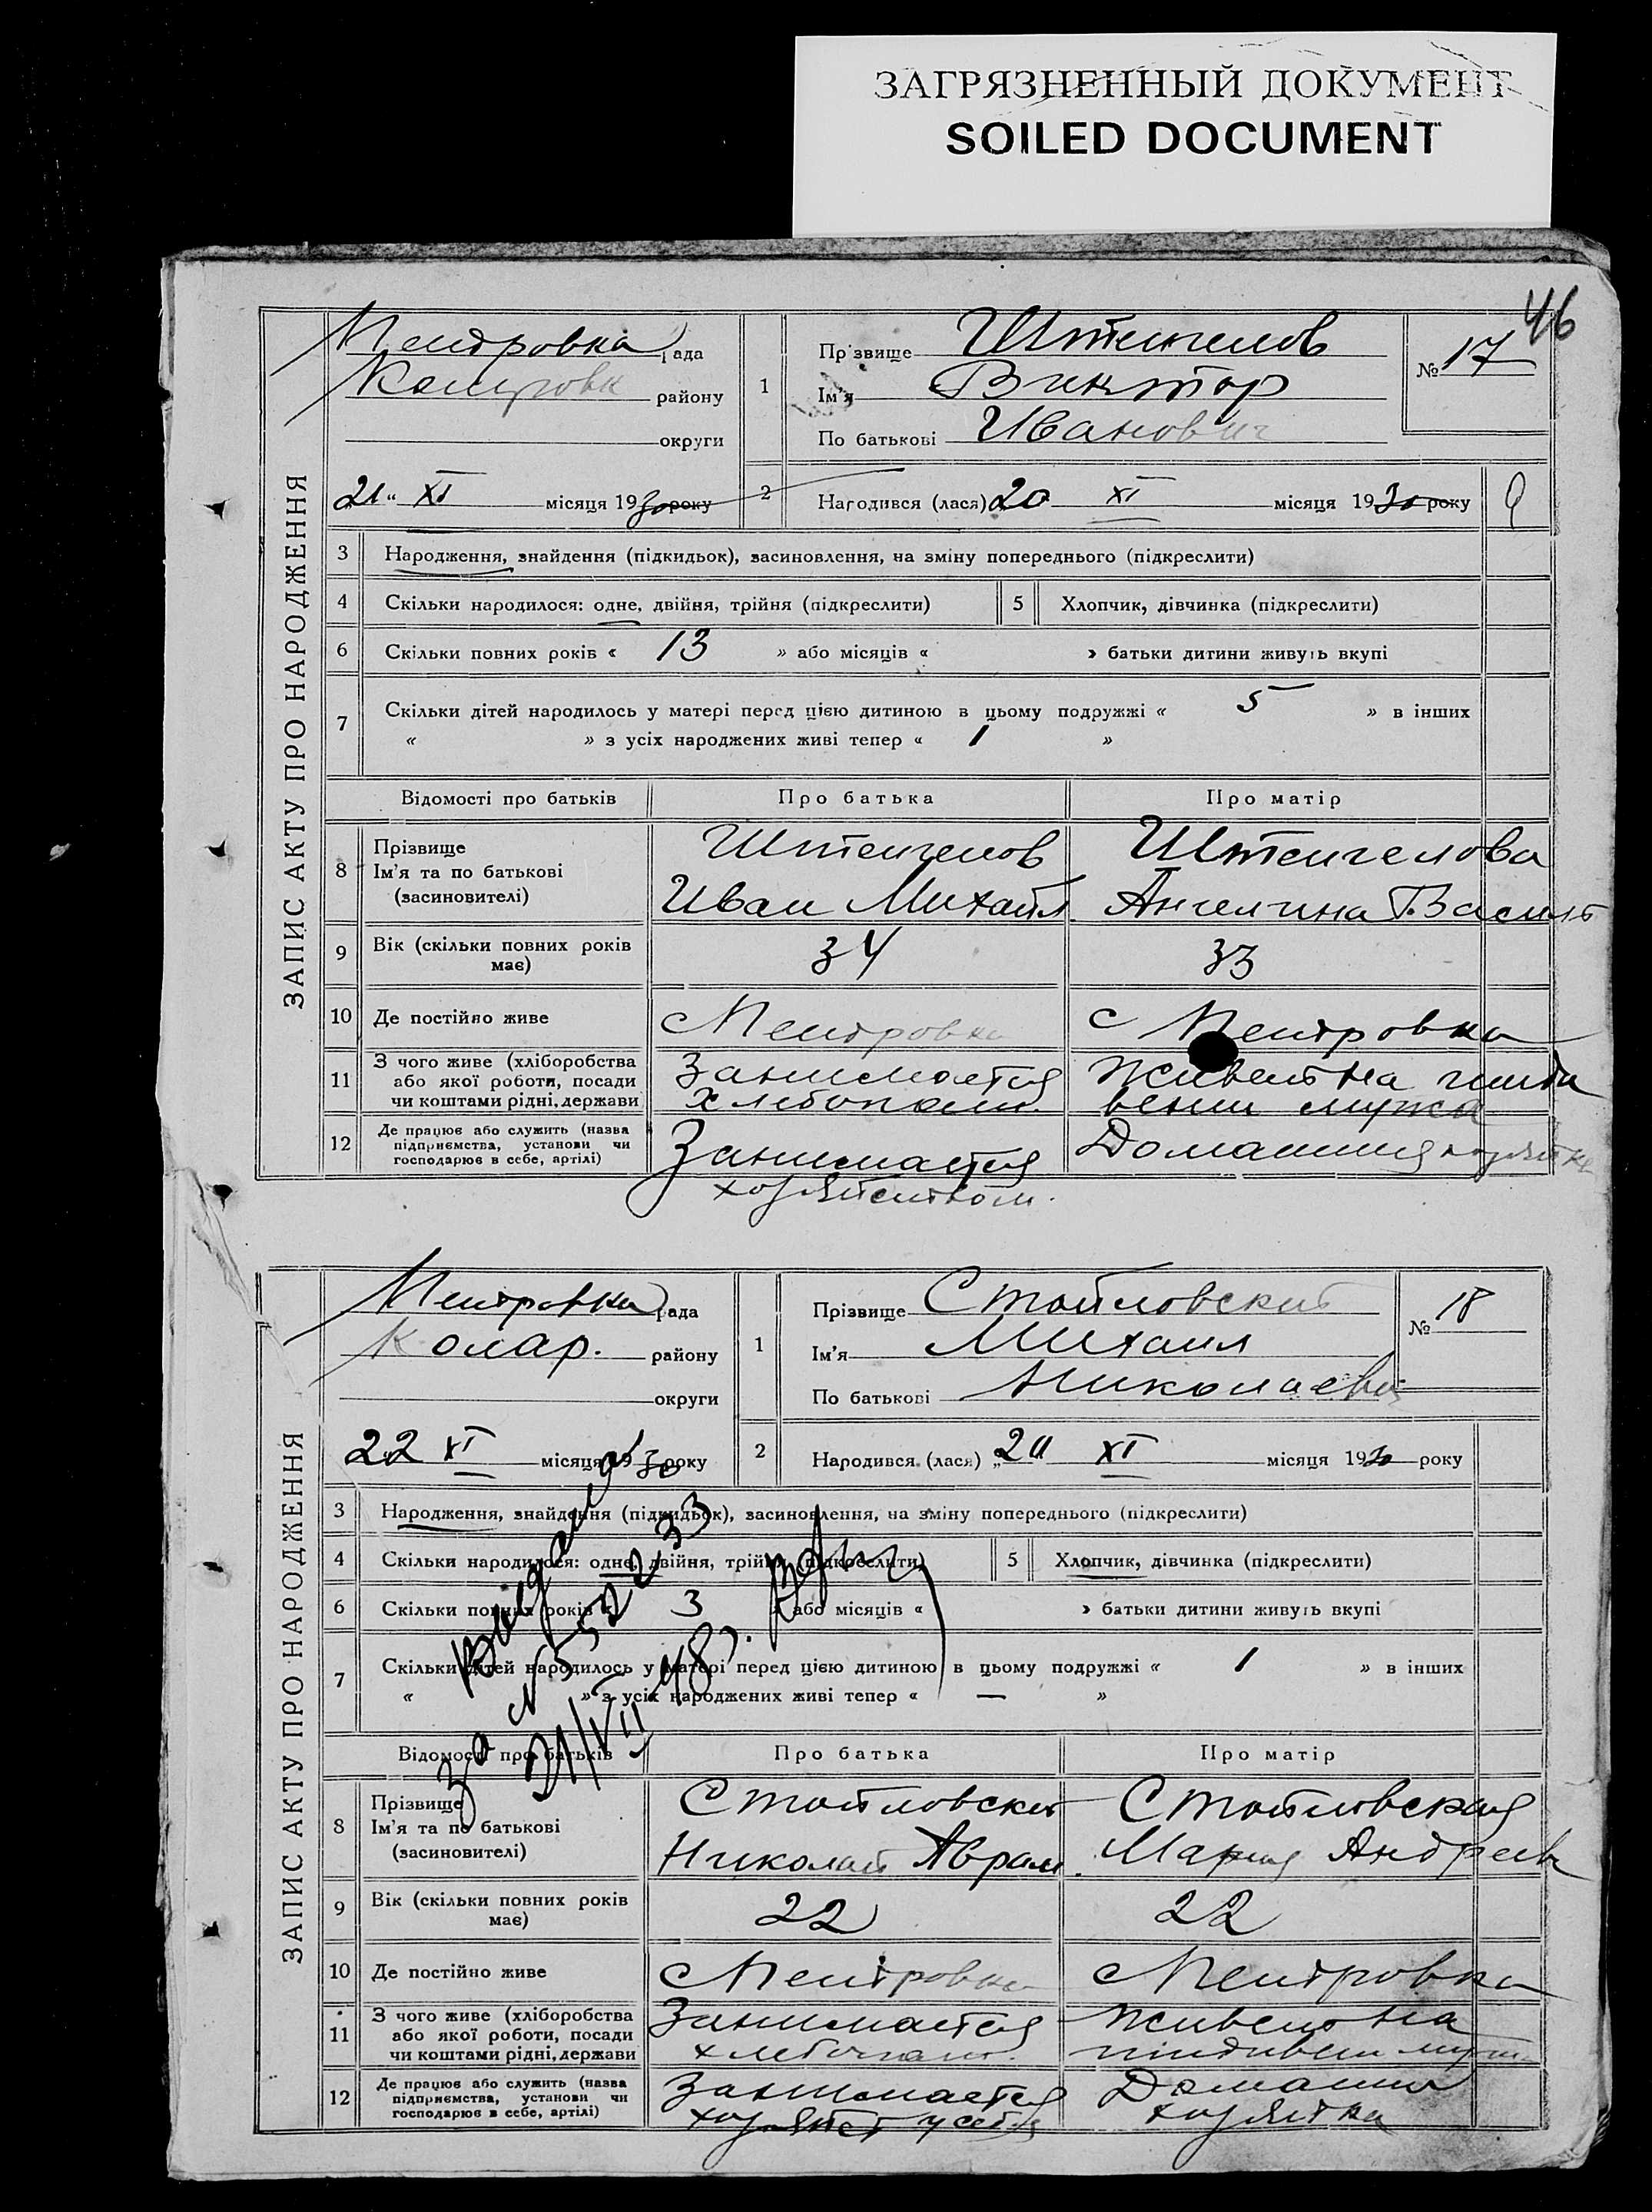 ЗАГРЯЗНЕННЫЙ ДОКУМЕНТ
SOILED DOCUMENT
46
ЗАПИС АКТУ ПРО НАРОДЖЕННЯ
Петровка рада
району
округи
21 XI місяця 1930 року
1
Прізвище Штенгелов
Ім'я Виктор
По батькові Иванович
№ 17
2 Народився (лася) 20 XI місяця 1930 року
3 Народження, знайдення (підкидьок), засиновлення, на зміну попереднього (підкреслити)
4 Скільки народилося: одне, двійня, трійня (підкреслити) 5 Хлопчик, дівчинка (підкреслити)
6 Скільки повних років « 13 » або місяців « » батьки дитини живуть вкупі
7 Скільки дітей народилось у матері перед цією дитиною в цьому подружжі « 5 » в інших
« » з усіх народжених живі тепер « 1 »
Відомості про батьків Про батька Про матір
8 Прізвище
Ім'я та по батькові
(засиновителі)
Штенгелов
Иван Михайл.
Штенгелова
Ангелина Васил
9 Вік (скільки повних років має) 34 33
10 Де постійно живе с Петровка с Петровка
11 З чого живе (хліборобства
або якої роботи, посади
чи коштами рідні, держави
Занимается
хлебопаш.
Живет на
мужа
12 Де працює або служить (назва
підприємства, установи чи
господарює в себе, артілі)
Занимается
хозяйством.
Домашняя хозяйка
ЗАПИС АКТУ ПРО НАРОДЖЕННЯ
Петровка рада
Колар. району
округи
22 XI місяця 1930 року
1
Прізвище Стойловский
Ім'я Михаил
По батькові Николаевич
№ 18
2 Народився (лася) „ XI місяця 1930 року
3 Народження, знайдення (підкидьок), засиновлення, на зміну попереднього (підкреслити)
4 Скільки народилося: одне, двійня, трійня (підкреслити) 5 Хлопчик, дівчинка (підкреслити)
6 Скільки повних років « 3 » або місяців « » батьки дитини живуть вкупі
7 Скільки дітей народилось у матері перед цією дитиною в цьому подружжі « 1 » в інших
« » з усіх народжених живі тепер « — »
за №
21/VII 48 г.
Відомості про батьків Про батька Про матір
8 Прізвище
Ім'я та по батькові
(засиновителі)
Стойловский
Николай Аврам.
Стойловская
Мария Андреев
9 Вік (скільки повних років має) 22 22
10 Де постійно живе с Петровка с Петровка
11 З чого живе (хліборобства
або якої роботи, посади
чи коштами рідні, держави
Занимается
хлебопаш.
Живет на
12 Де працює або служить (назва
підприємства, установи чи
господарює в себе, артілі)
Занимается
хозяйст у себя
Домашн
хозяйка